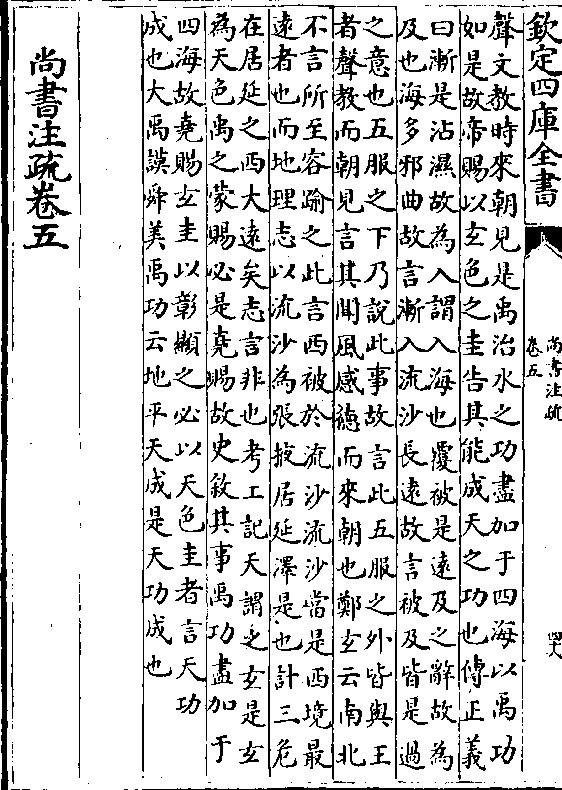 欽定四庫全書
尚書注疏
卷五
四六
聲文教時來朝見是禹治水之功盡加于四海以禹功
如是故帝賜以玄色之圭告其能成天之功也傳正義
曰漸是沾濕故為入謂入海也覆被是遠及之辭故為
及也海多邪曲故言漸入流沙長遠故言被及皆是過
之意也五服之下乃說此事故言此五服之外皆與王
者聲教而朝見言其聞風感德而來朝也鄭玄云南北
不言所至容踰之此言西被於流沙流沙當是西境最
遠者也而地理志以流沙為張掖居延澤是也計三危
在居延之西大遠矣志言非也考工記天謂之玄是玄
為天色禹之蒙賜必是堯賜故史敘其事禹功盡加于
四海故堯賜玄圭以彰顯之必以天色圭者言天功
成也大禹謨舜美禹功云地平天成是天功成也
尚書注疏卷五